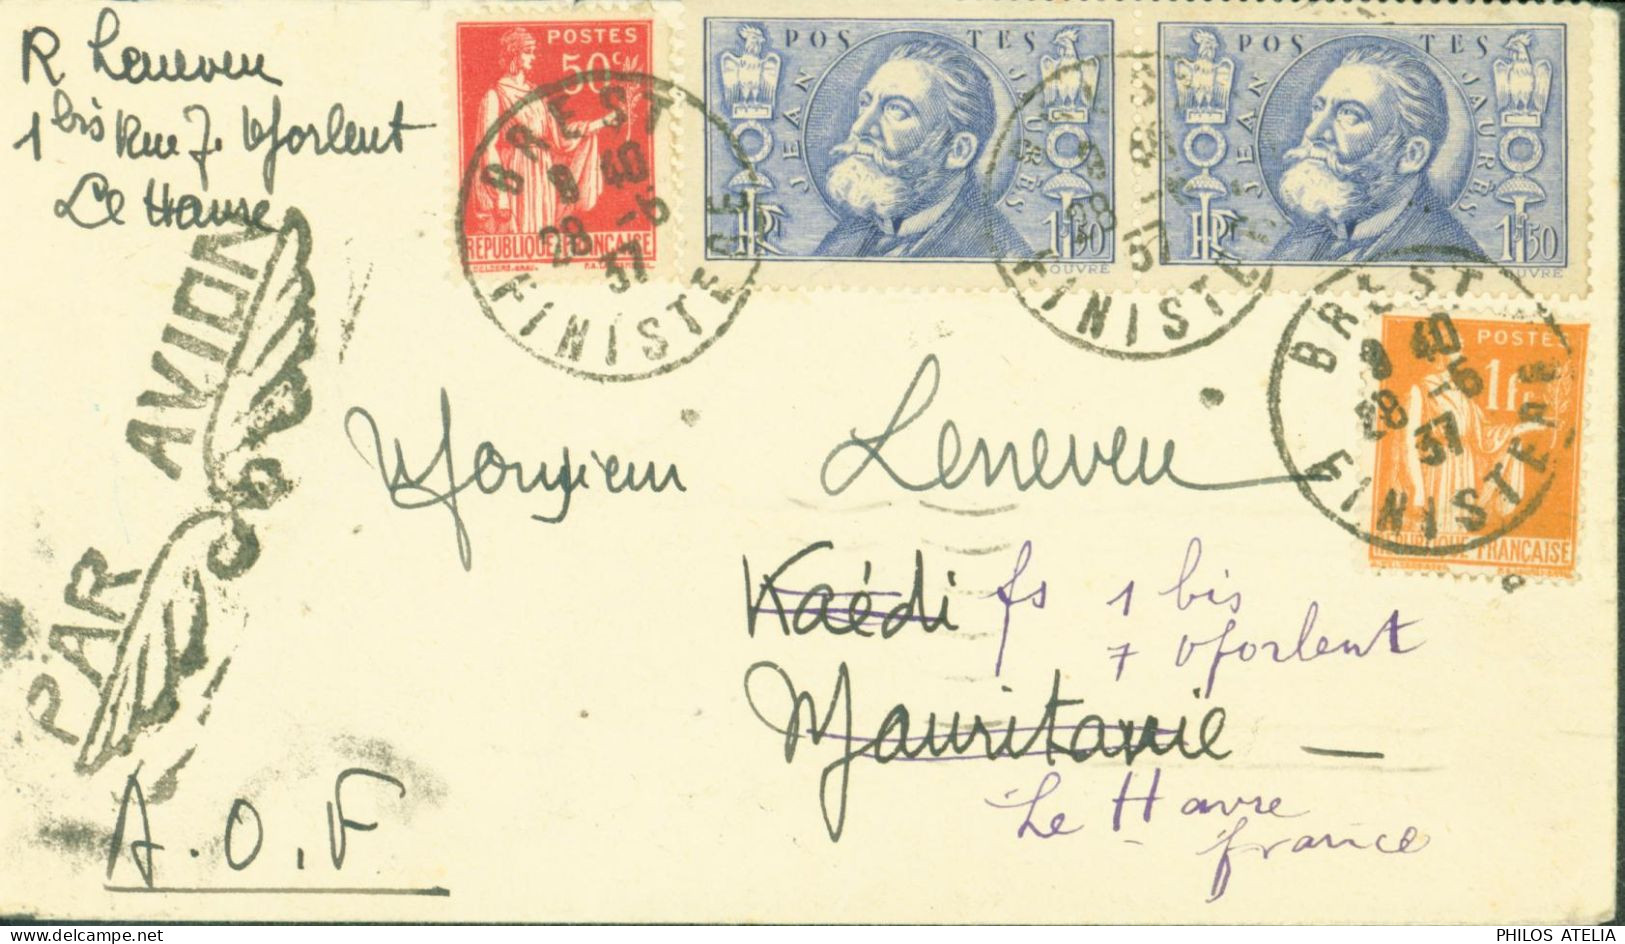 R Leneveu
1 bis Rue J. Morlent
Le Havre
PAR AVION
POSTES
50c
REPUBLIQUE FRANÇAISE
POSTES
JEAN JAURÈS
RF
1f50
POSTES
JEAN JAURÈS
RF
1f50
POSTES
1f
REPUBLIQUE FRANÇAISE
BREST
8 40
28 -6
37
FINISTERE
28
37
FINISTERE
BREST
8 40
28 -6
37
FINISTERE
Monsieur Leneveu
Kaédi
Mauritanie —
1 bis
J Morlent
Le Havre
france
A.O.F
PHILOS ATELIA